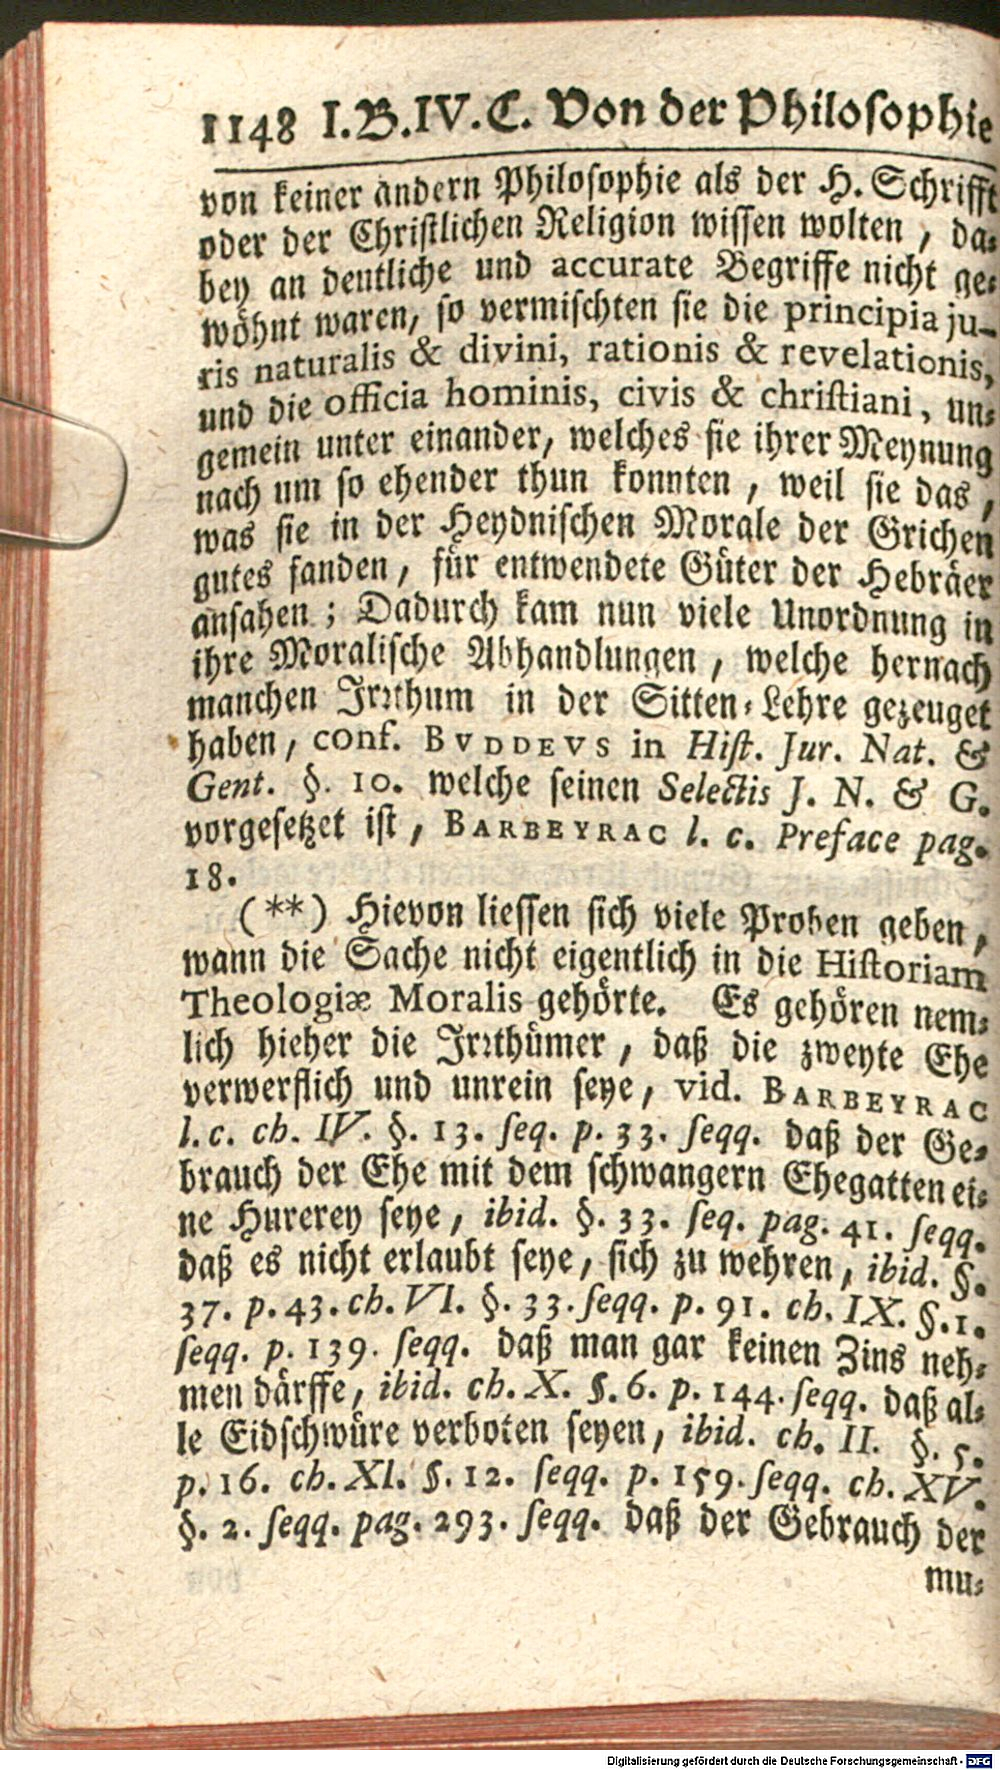 1148 I.B.IV.C. Von der Philosophie
von keiner andern Philosophie als der H. Schrifft
oder der Christlichen Religion wissen wolten, da-
bey an deutliche und accurate Begriffe nicht ge-
wöhnt waren, so vermischten sie die principia ju-
ris naturalis & divini, rationis & revelationis,
und die officia hominis, civis & christiani, un-
gemein unter einander, welches sie ihrer Meynung
nach um so ehender thun konnten, weil sie das,
was sie in der Heydnischen Morale der Grichen
gutes fanden, für entwendete Güter der Hebräer
ansahen; Dadurch kam nun viele Unordnung in
ihre Moralische Abhandlungen, welche hernach
manchen Irrthum in der Sitten-Lehre gezeuget
haben, conf. BVDDEVS in Hist. Jur. Nat. &
Gent. §. 10. welche seinen Selectis J. N. & G.
vorgesetzet ist, BARBEYRAC l. c. Preface pag.
18.
(**) Hievon liessen sich viele Proben geben,
wann die Sache nicht eigentlich in die Historiam
Theologiæ Moralis gehörte. Es gehören nem-
lich hieher die Irrthümer, daß die zweyte Ehe
verwerflich und unrein seye, vid. BARBEYRAC
l. c. ch. IV. §. 13. seq. p. 33. seqq. daß der Ge-
brauch der Ehe mit dem schwangern Ehegatten ei-
ne Hurerey seye, ibid. §. 33. seq. pag. 41. seqq.
daß es nicht erlaubt seye, sich zu wehren, ibid. §.
37. p. 43. ch. VI. §. 33. seqq. p. 91. ch. IX. §. 1.
seqq. p. 139. seqq. daß man gar keinen Zins neh-
men därffe, ibid. ch. X. §. 6. p. 144. seqq. daß al-
le Eidschwüre verboten seyen, ibid. ch. II. §. 5.
p. 16. ch. XI. §. 12. seqq. p. 159. seqq. ch. XV.
§. 2. seqq. pag. 293. seqq. daß der Gebrauch der
mu-
Digitalisierung gefördert durch die Deutsche Forschungsgemeinschaft - DFG